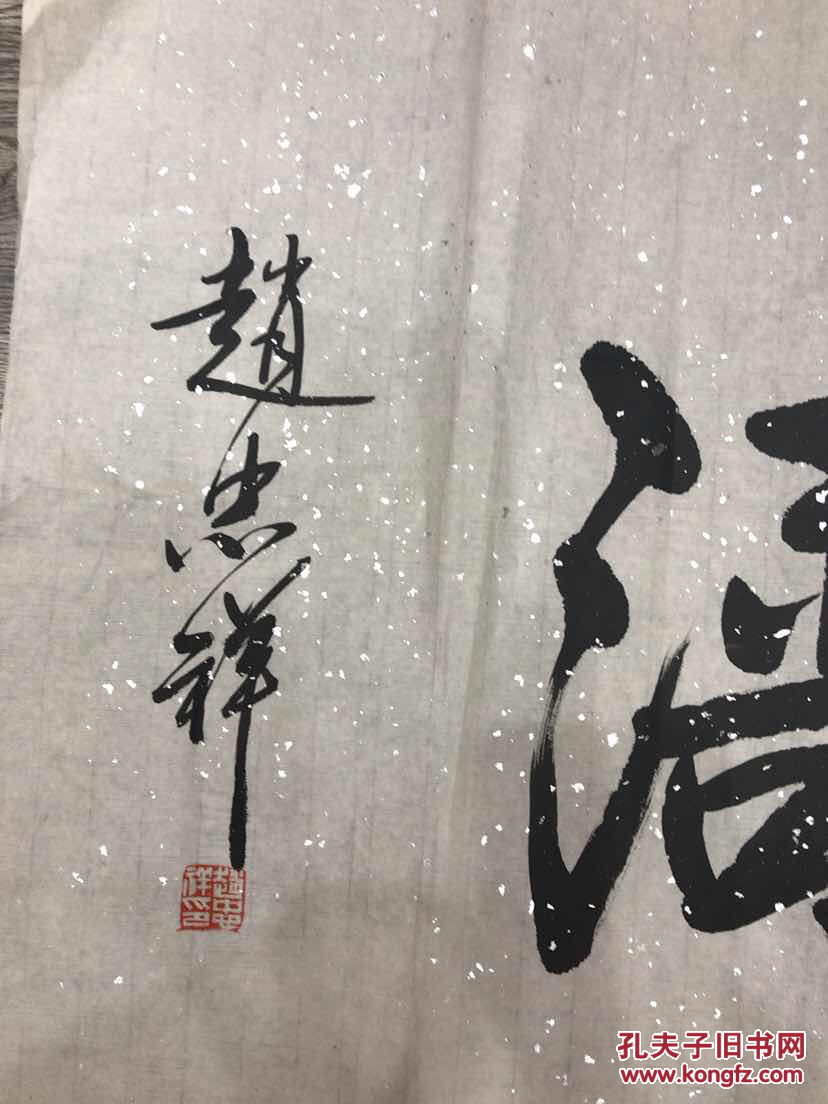 趙忠祥
趙忠
祥印
孔夫子旧书网
www.kongfz.com